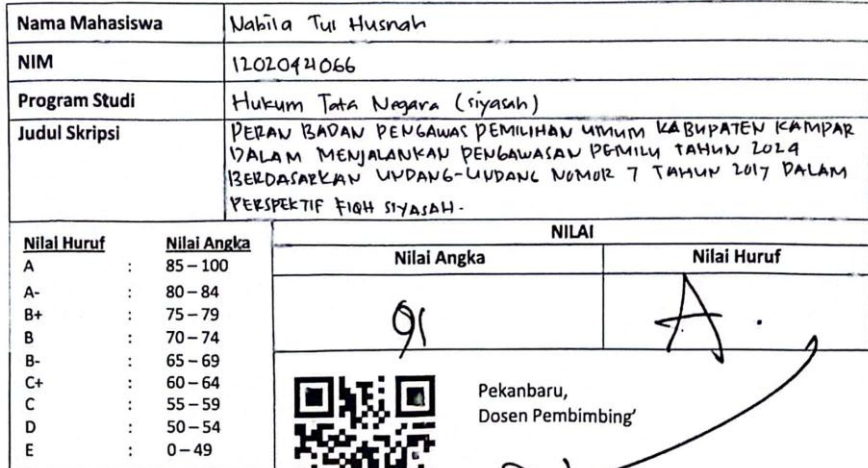 Nama Mahasiswa Nabila Tul Husnah
NIM 12020424066
Program Studi Hukum Tata Negara (siyasah)
Judul Skripsi PERAN BADAN PENGAWAS PEMILIHAN UMUM KABUPATEN KAMPAR
DALAM MENJALANKAN PENGAWASAN PEMILU TAHUN 2024
BERDASARKAN UNDANG-UNDANG NOMOR 7 TAHUN 2017 DALAM
PERSPEKTIF FIQH SIYASAH.
Nilai Huruf Nilai Angka
A : 85 – 100
A- : 80 – 84
B+ : 75 – 79
B : 70 – 74
B- : 65 – 69
C+ : 60 – 64
C : 55 – 59
D : 50 – 54
E : 0 – 49
NILAI
Nilai Angka Nilai Huruf
91 A.
Pekanbaru,
Dosen Pembimbing'